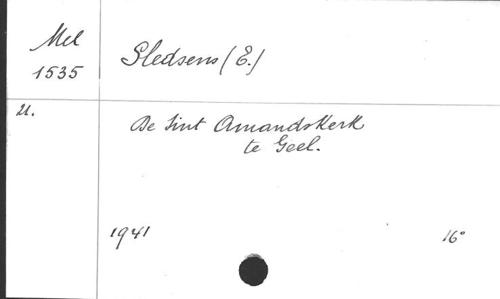 Mel
1535
Sledsens (E.)
U.
De Sint Amandskerk
te Geel.
1941
16°